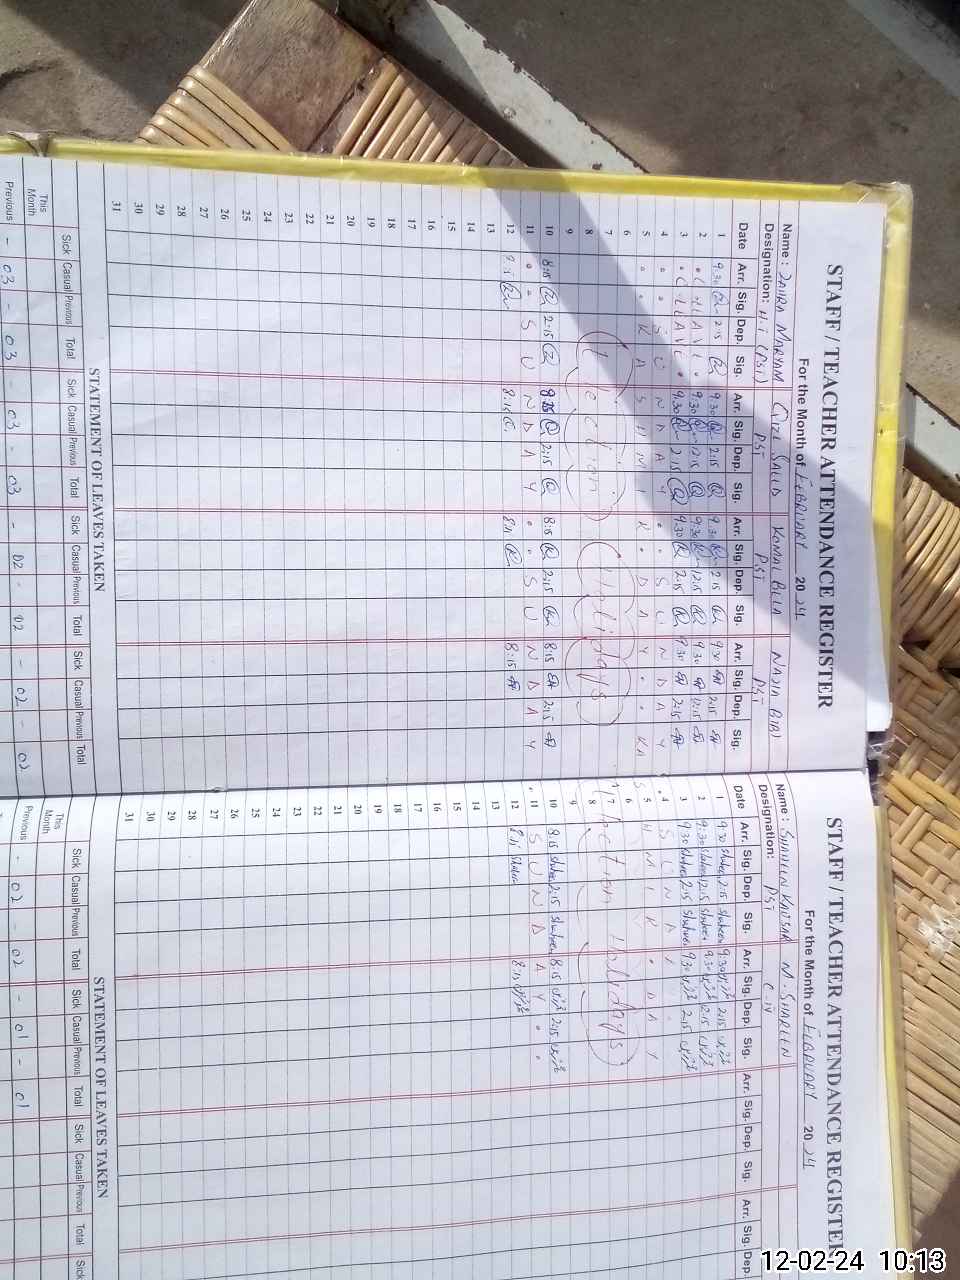 STAFF / TEACHER ATTENDANCE REGISTER
For the Month of FEBRUARY 2024
Name: ZAIRA MARYAM QURAT SAEED KOMAL BILLA NAJIA BIBI
Designation: H.T (PST) PST PST PST
Date Arr. Sig. Dep. Sig. Arr. Sig. Dep. Sig. Arr. Sig. Dep. Sig. Arr. Sig. Dep. Sig.
1 9:30 2:15 9:30 2:15 9:30 2:15 9:30 2:15
2 9:30 12:15 9:30 12:15 9:30 12:15
3 9:30 2:15 9:30 2:15 9:30 2:15
4 SUNDAY
5 KASHMIR DAY
6
7 Election Holidays
8
9
10 8:15 2:15 8:15 2:15 8:15 2:15 8:15 2:15
11 SUNDAY SUNDAY
12 8:15 8:15 8:15
13
14
15
16
17
18
19
20
21
22
23
24
25
26
27
28
29
30
31
STATEMENT OF LEAVES TAKEN
Sick Casual Previous Total Sick Casual Previous Total Sick Casual Previous Total Sick Casual Previous Total
This Month
Previous - 03 - 03 - 03 - 03 - 02 - 02 - 02 - 02
STAFF / TEACHER ATTENDANCE REGISTER
For the Month of FEBRUARY 2024
Name: SHAHEEN KAUSAR M. SHAREEN
Designation: PST C-iv
Date Arr. Sig. Dep. Sig. Arr. Sig. Dep. Sig. Arr. Sig. Dep. Sig. Arr. Sig. Dep.
1 9:30 Shaheen 2:15 Shaheen 9:30 2:15
2 9:30 Shaheen 12:15 Shaheen 9:30 12:15
3 9:30 Shaheen 2:15 Shaheen 9:30 2:15
4 SUNDAY
5 KASHMIR DAY
6
7 Election Holydays
8
9
10 8:15 Shaheen 2:15 Shaheen 8:15 2:15
11 SUNDAY
12 Shaheen 8:15
13
14
15
16
17
18
19
20
21
22
23
24
25
26
27
28
29
30
31
STATEMENT OF LEAVES TAKEN
Sick Casual Previous Total Sick Casual Previous Total Sick Casual Previous Total Sick
This Month
Previous - 02 - 02 - 01 - 01
12-02-24 10:13